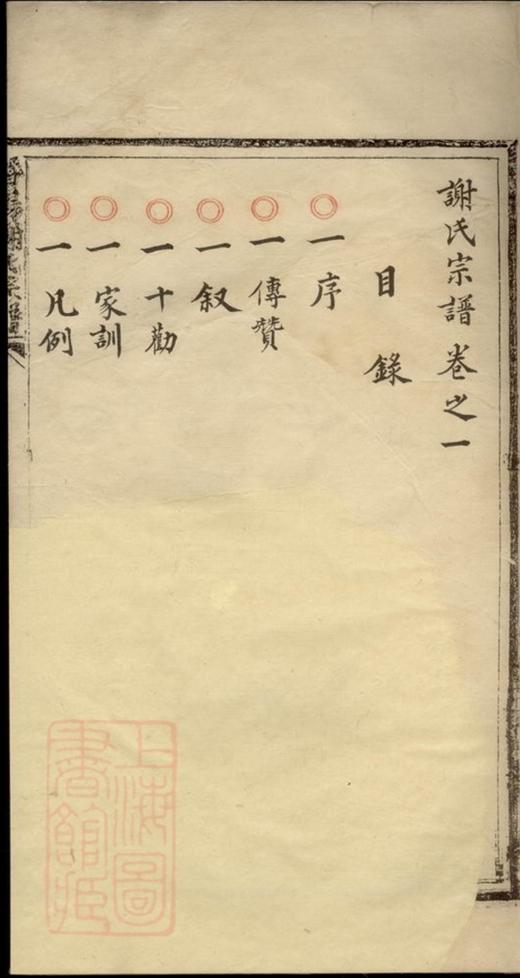 謝氏宗譜卷之一
目錄
一序
一傳贊
一叙
一十勸
一家訓
一凡例
謝氏宗譜
上海圖
書館藏